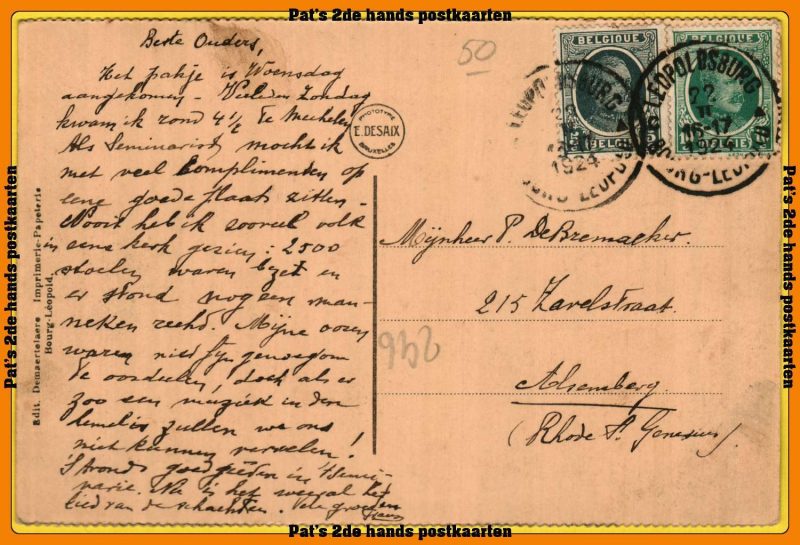 Pat's 2de hands postkaarten
Beste Ouders,
Het pakje is Woensdag
aangekomen - Verleden Zondag
kwam ik rond 4 1/2 te Mechelen
Als Seminarist mocht ik
met veel complimenten op
eene goede plaats zitten.
Nooit heb ik zooveel volk
in eene kerk gezien: 2500
stoelen waren bezet en
er stond nog een man-
neken recht. Mijne ooren
waren niet fijn genoeg om
te oordeelen, doch als er
zoo een muziek in den
hemel is zullen we ons
niet kunnen vervelen!
'S Avonds goed in 't Semi-
narie. Nu is het weeral het
lied van de schachten. Vele groeten
50
BELGIQUE
BELGIQUE
LEOPOLDSBURG
22
II
16-17
1924
BOURG-LEOPOLD
1924
PHOTOTYPIE
E. DESAIX
BRUXELLES
Mijnheer P. DeBremaeker.
215 Zavelstraat.
Alsemberg
(Rhode St. Genesius)
246
Edit. Demaertelaere Imprimerie-Papeterie
Bourg-Léopold.
Pat's 2de hands postkaarten
Pat's 2de hands postkaarten
Pat's 2de hands postkaarten